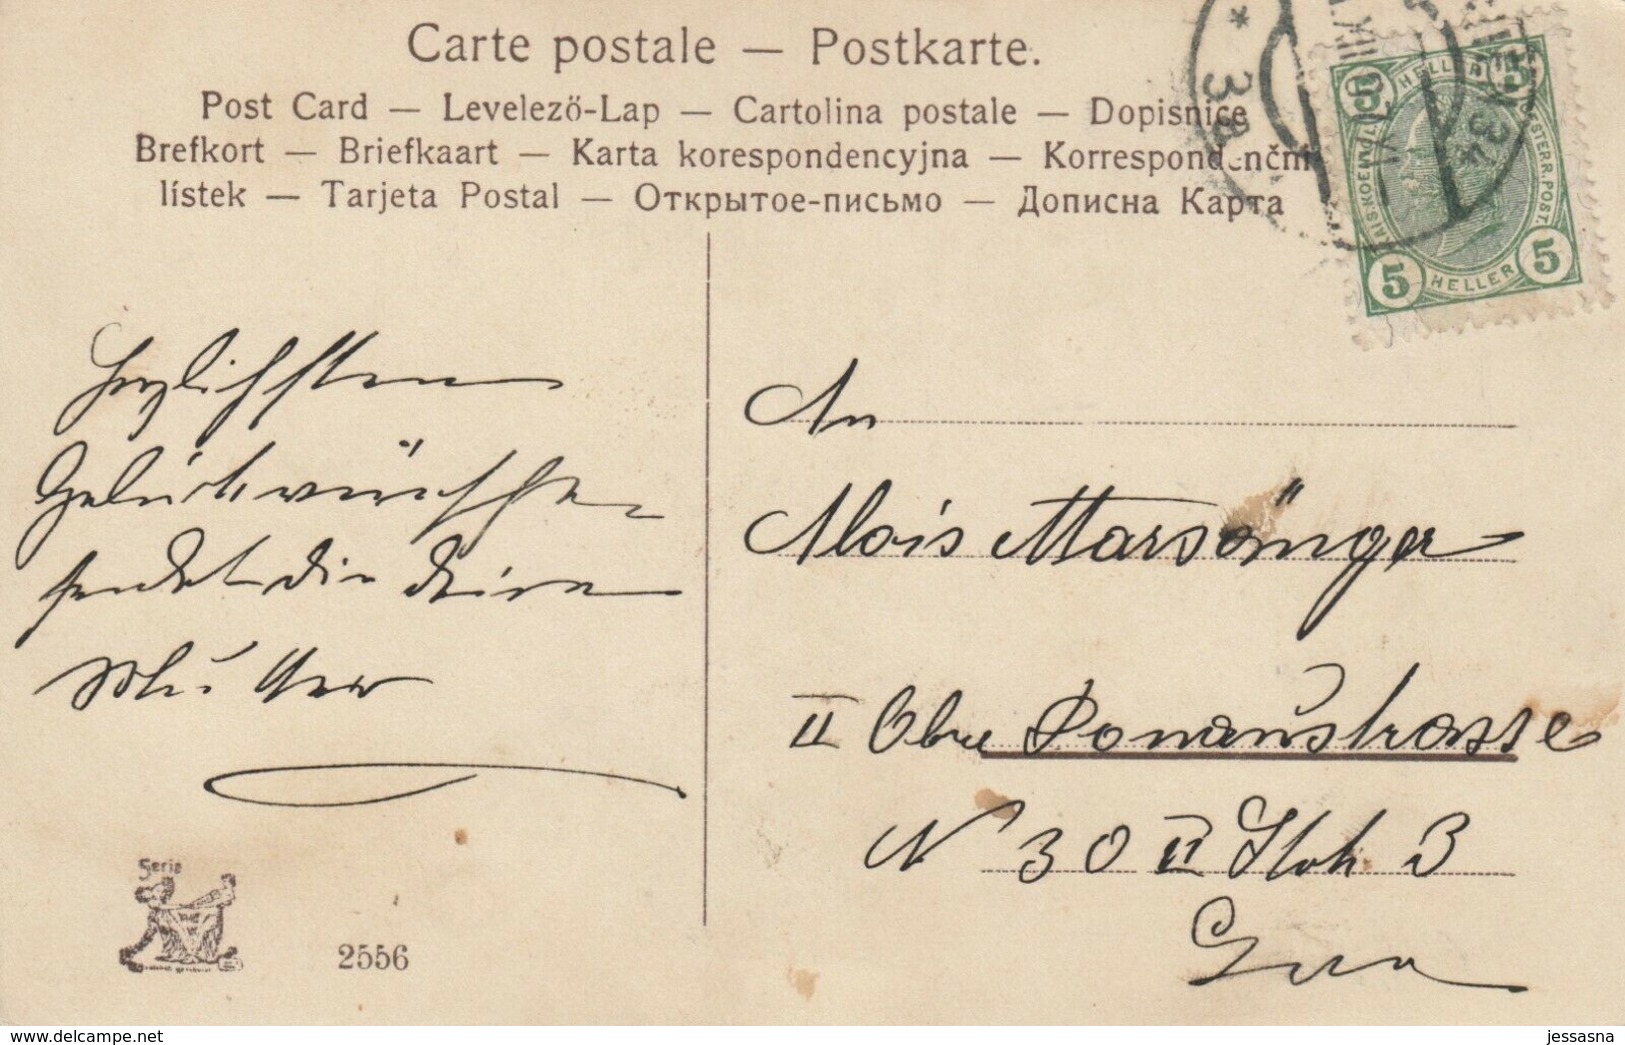 Carte postale — Postkarte.
Post Card — Levelező-Lap — Cartolina postale — Dopisnice
Brefkort — Briefkaart — Karta korespondencyjna — Korrespondenční
lístek — Tarjeta Postal — Открытое-письмо — Дописна Карта
5 HELLER 5
KAIS. KOENIGL. OESTERR. POST.
5 HELLER 5
Herzlichsten
Glückwünsche
sendet die Deine
Mutter
An
Alois Marsänger
II Obre Donaustrasse
N 30 II Stok 3
Serie
2556
www.delcampe.net
jessasna